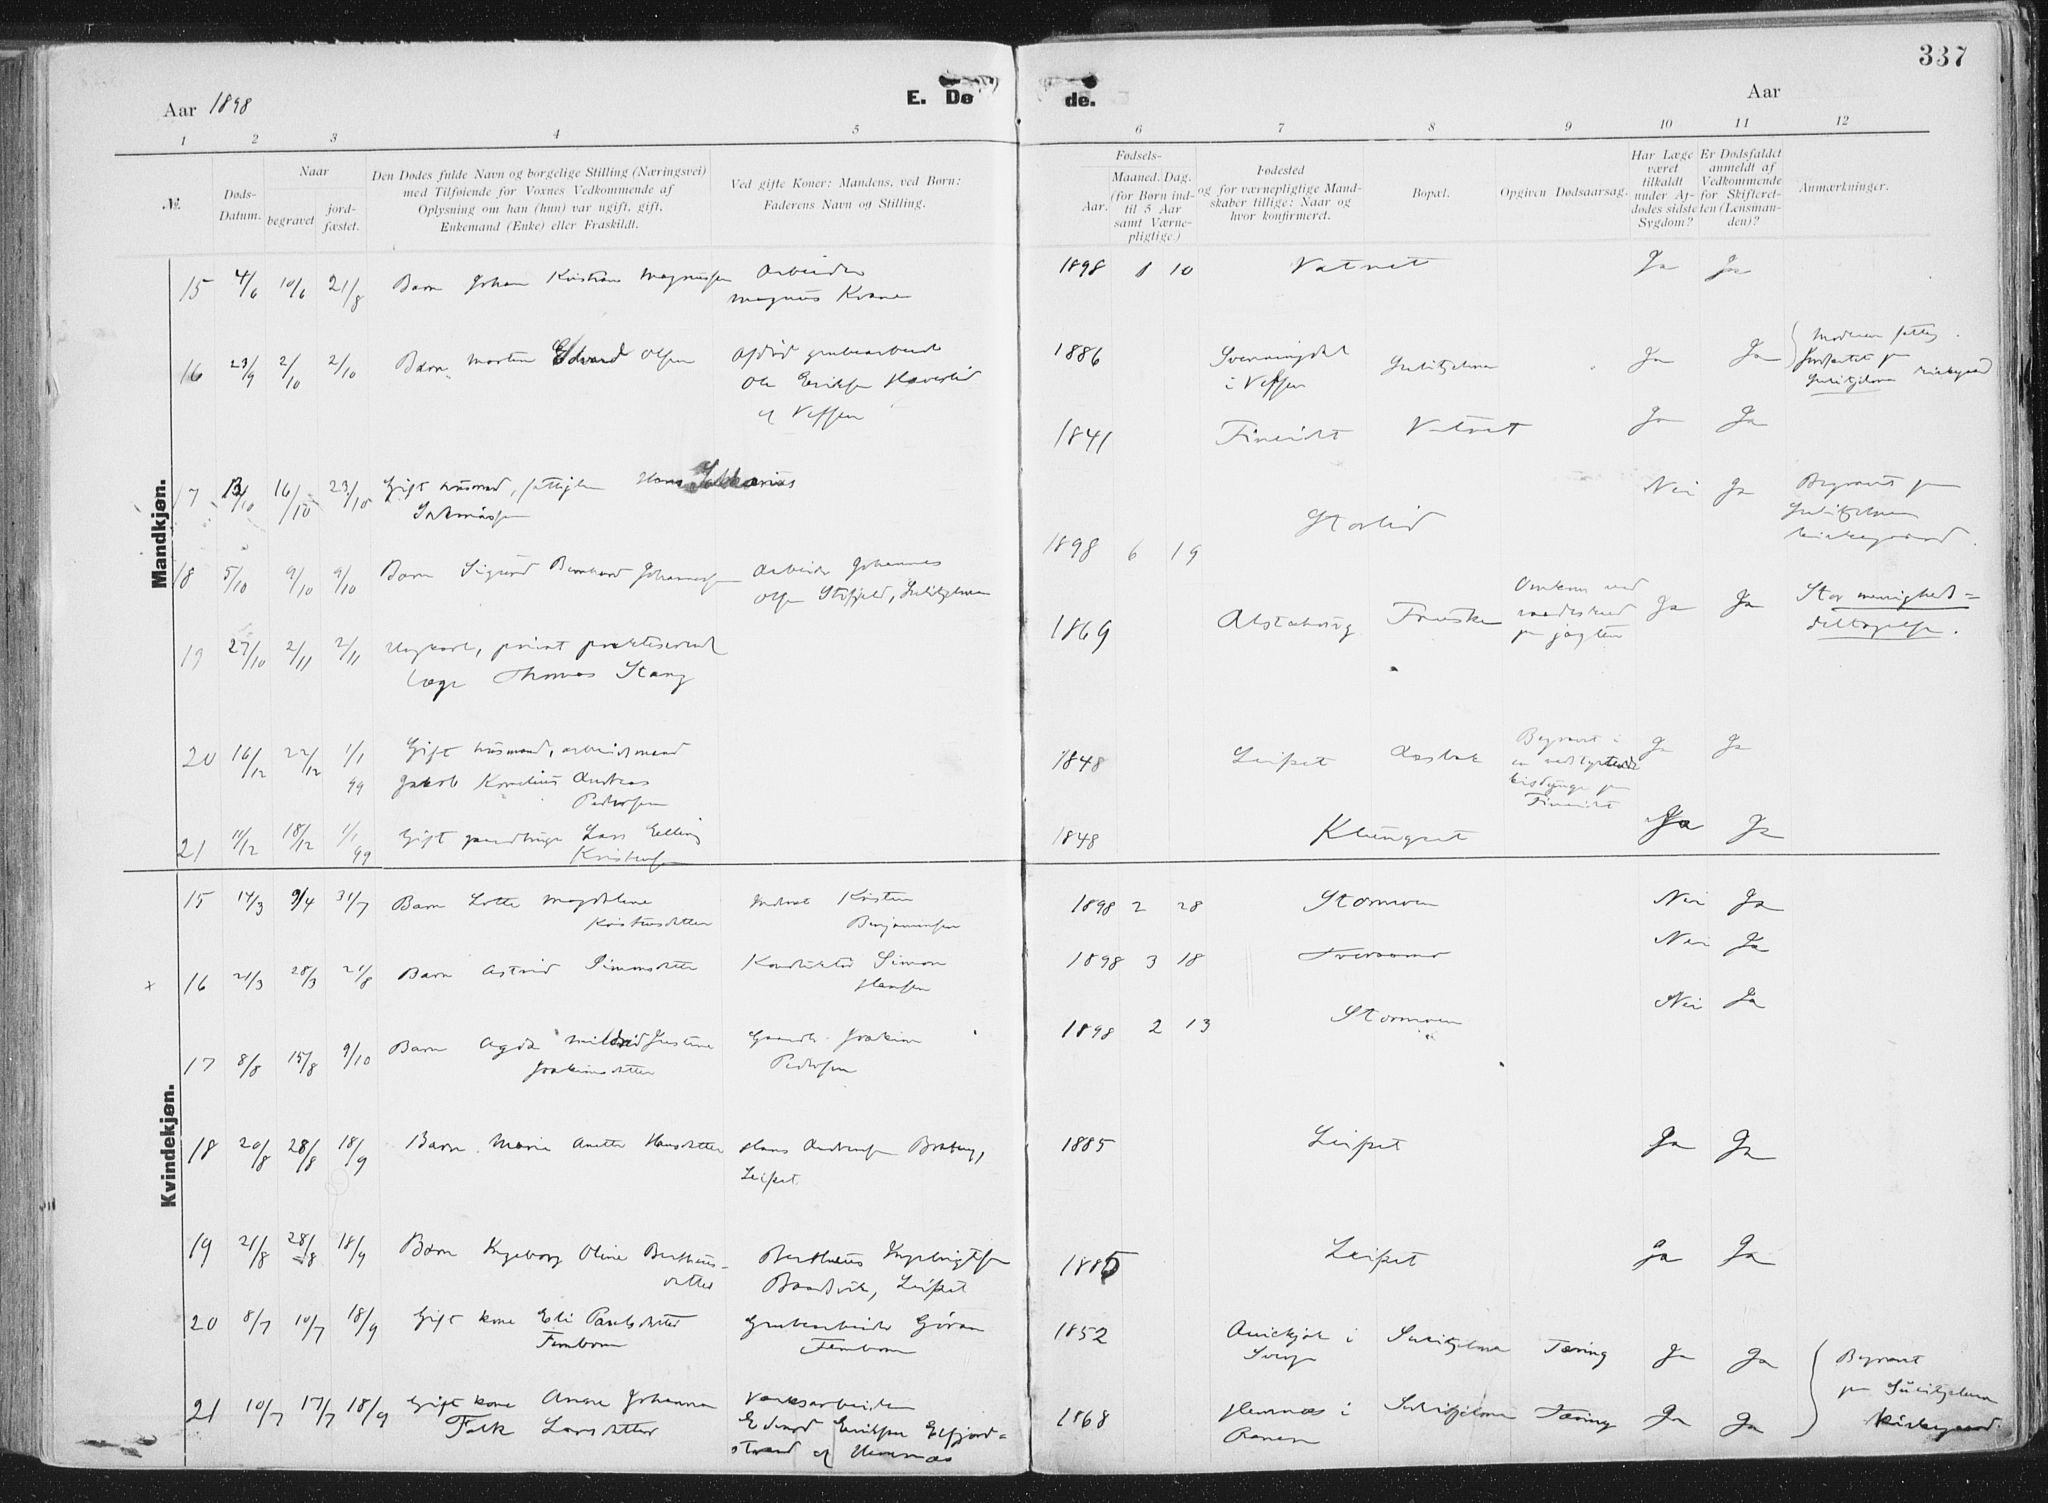 337
Aar 1898
E. Dø
de.
Aar
1 2 3 4 5 6 7 8 9 10 11 12
№.
Døds-
Datum.
Naar
begravet
jord-
fæstet.
Den Dødes fulde Navn og borgelige Stilling (Næringsvei)
med Tilføiende for Voxnes Vedkommende af
Oplysning om han (hun) var ugift, gift,
Enkemand (Enke) eller Fraskildt.
Ved gifte Koner: Mandens, ved Børn:
Faderens Navn og Stilling.
Fødsels-
Aar.
Maaned. Dag.
(for Børn ind-
til 5 Aar
samt Værne-
pligtige.)
Fødested
og for værnepligtige Mand-
skaber tillige: Naar og
hvor konfirmeret.
Bopæl.
Opgiven Dødsaarsag.
Har Læge
været
tilkaldt
under Af-
dødes sidste
Sygdom?
Er Dødsfaldet
anmeldt af
Vedkommende
for Skifteret-
ten (Lensman-
den)?
Anmærkninger.
Mandkjøn.
15 4/6 10/6 21/8 Barn Johan Kristian Magnussen Arbeider
Magnus Kvæne
1898 1 10 Vatnet Ja Ja
16 23/9 2/10 2/10 Barn Morten Edvard Olsen Afdød grubearbeider
Ole Eriksen Haverlid
af Vefsen
1886 Svenningdal
i Vefsen
Sulitjelma Ja Ja
Sulitjelma kirkegaard
17 13/10 16/10 23/10 Gift husmand, fattiglem Hans Sakkarias
1841 Fineidet Vatnet Ja Ja
18 5/10 9/10 9/10 Barn Sigurd Bernhard Johannessen Arbeider Johannes
Olsen Storfjeld, Sulitjelma
1898 6 19 Storlid Nei Ja Begravet paa
Sulitjelma
kirkegaard.
19 27/10 2/11 2/11 Ungkarl, privat praktiserende
læge Thomas Stang
1869 Alstahoug Fauske Omkom ved
vaadeskud
paa jagten
Ja Ja Stor menigheds=
deltagelse.
20 16/12 22/12 1/1 99 Gift husmand, arbeidsmand
Jakob Kornelius Andreas
Pedersen
1848 Leifset Begravet i
Fineidet
Ja Ja
21 11/12 18/12 1/1 99 Gift gaardbruger Lars Elling
Kristensen
1848 Klungset Ja Ja
Kvindekjøn.
15 14/3 9/4 31/7 Barn Lotte Magdalene
Kristensdatter
Kristen
Benjaminsen
1898 2 28 Stormoen Nei Ja
x 16 21/3 28/3 21/8 Barn Astrid Simonsdatter Konduktør Simon
Hansen
1898 3 18 Nei Ja
17 8/8 15/8 9/10 Barn Agda Mildrid Justine
Joakimsdatter
Gaardb. Joakim
Pedersen
1898 2 13 Stormoen Nei Ja
18 20/8 28/8 18/9 Barn Marie Anette Hansdatter Hans Andersen
Leifset
1885 Leifset Ja Ja
19 21/8 28/8 18/9 Barn Ingeborg Oline Bertheus-
datter
Bertheus Ingebrigtsen
Brandvik, Leifset
1885 Leifset Ja Ja
20 8/7 10/7 18/9 Gift kone Eli Paulsdatter
Fernbom
Grubearbeider Göran
Fernbom
1852 Quickjok i
Sverige
Sulitjelma Tæring Ja Ja
21 10/7 17/7 18/9 Gift kone Anne Johanna
Falk Larsdatter
Værksarbeider
Edvard Eriksen Elfjord=
strand af Hemnæs
1868 Hemnæs i
Ranen
Sulitjelma Tæring Ja Ja
Begravet
paa Sulitjelma
kirkegaard.